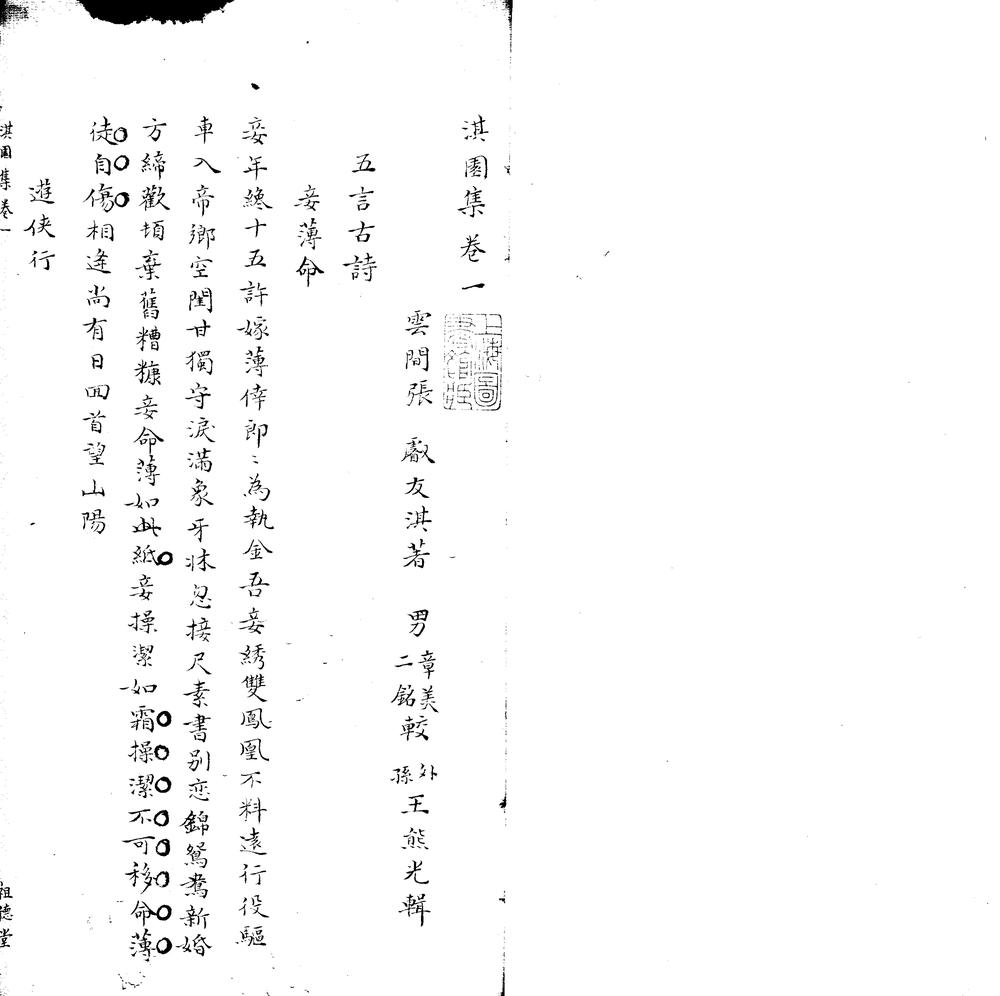 淇園集卷一
上海圖書館藏
雲間張 㲄友淇著 男章美二銘較 外孫王熊光輯
五言古詩
妾薄命
妾年纔十五許嫁薄倖郎〻為執金吾妾綉雙鳳凰不料遠行役驅
車入帝鄉空閨甘獨守淚滿象牙牀忽接尺素書別恋錦鴛鴦新婚
方締歡頓棄舊糟糠妾命薄如此紙妾操潔如霜操潔不可移命薄
徒自傷相逢尚有日回首望山陽
遊俠行
淇園集卷一
祖德堂